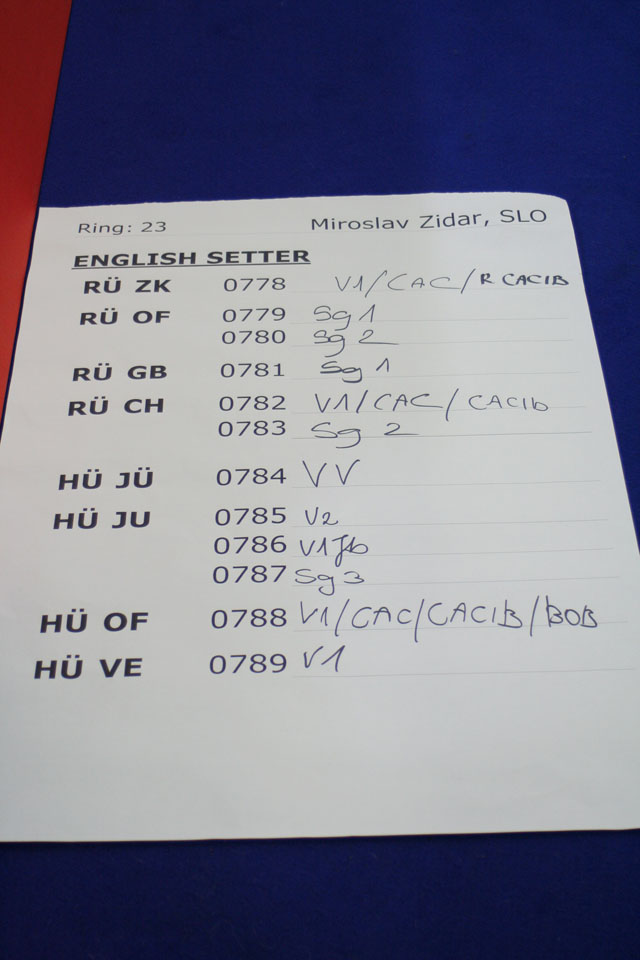 Ring: 23 Miroslav Zidar, SLO
ENGLISH SETTER
RÜ ZK 0778 V1/CAC/R CACIB
RÜ OF 0779 Sg 1
0780 Sg 2
RÜ GB 0781 Sg 1
RÜ CH 0782 V1/CAC/CACIb
0783 Sg 2
HÜ JÜ 0784 VV
HÜ JU 0785 V2
0786 V1 Jb
0787 Sg 3
HÜ OF 0788 V1/CAC/CACIB/BOB
HÜ VE 0789 V1